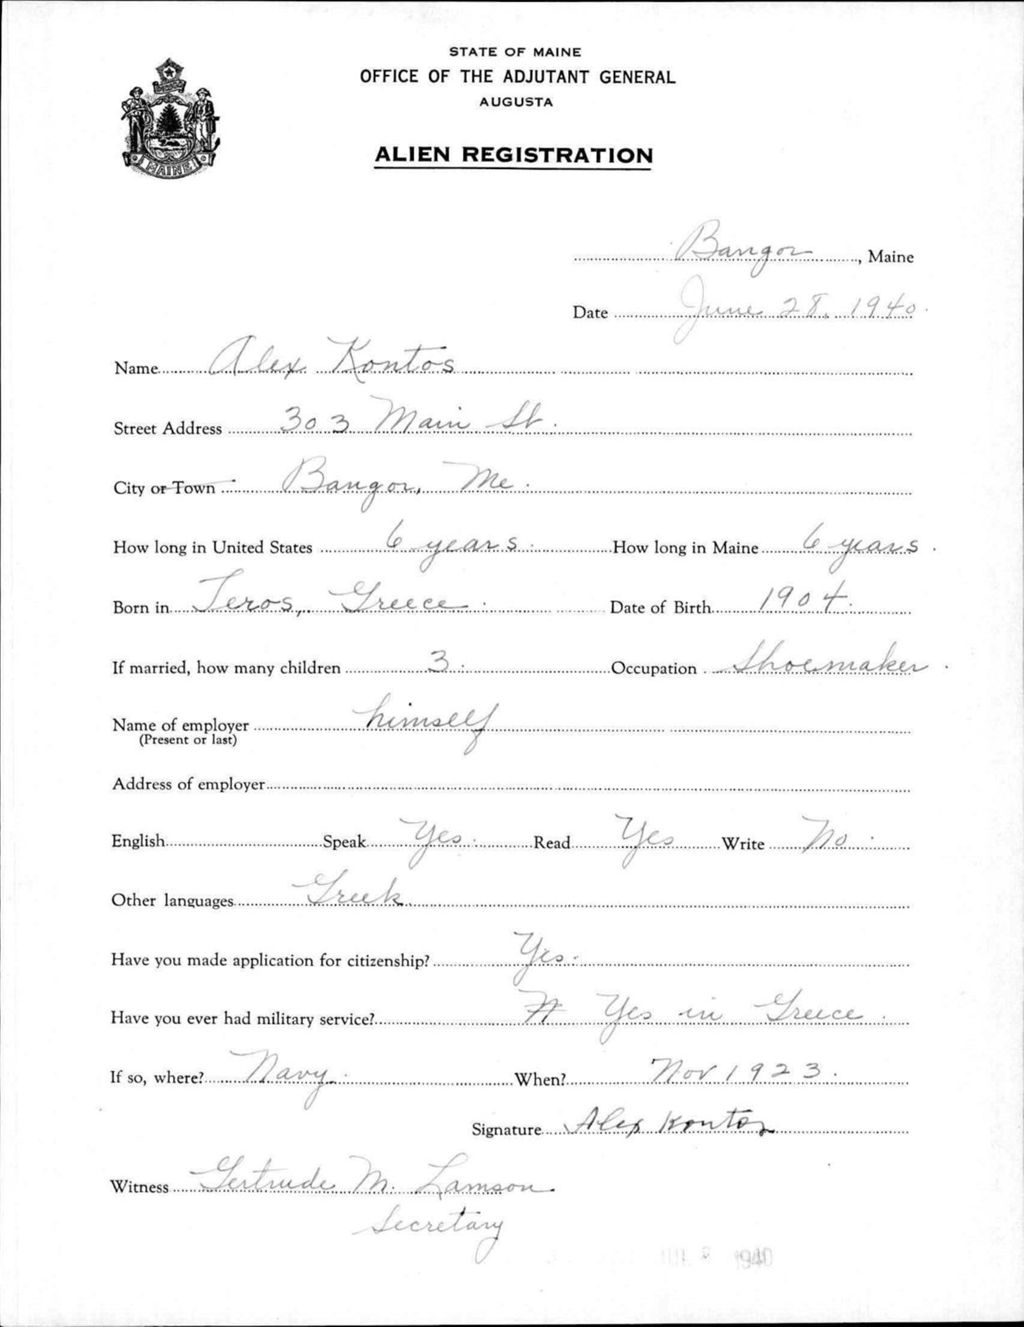 STATE OF MAINE
OFFICE OF THE ADJUTANT GENERAL
AUGUSTA
ALIEN REGISTRATION
MAINE
Bangor, Maine
Date June 28, 1940.
Name Alex Kontos
Street Address 303 Main St.
City or Town Bangor, Me.
How long in United States 6 years. How long in Maine 6 years.
Born in Teros, Greece. Date of Birth 1904.
If married, how many children 3. Occupation Shoemaker.
Name of employer himself
(Present or last)
Address of employer
English Speak Yes. Read Yes Write No.
Other languages Greek.
Have you made application for citizenship? Yes.
Have you ever had military service? Yes in Greece.
If so, where? Navy. When? Nov 1923.
Signature Alex Kontos
Witness Gertrude M. Lamson.
Secretary
1940